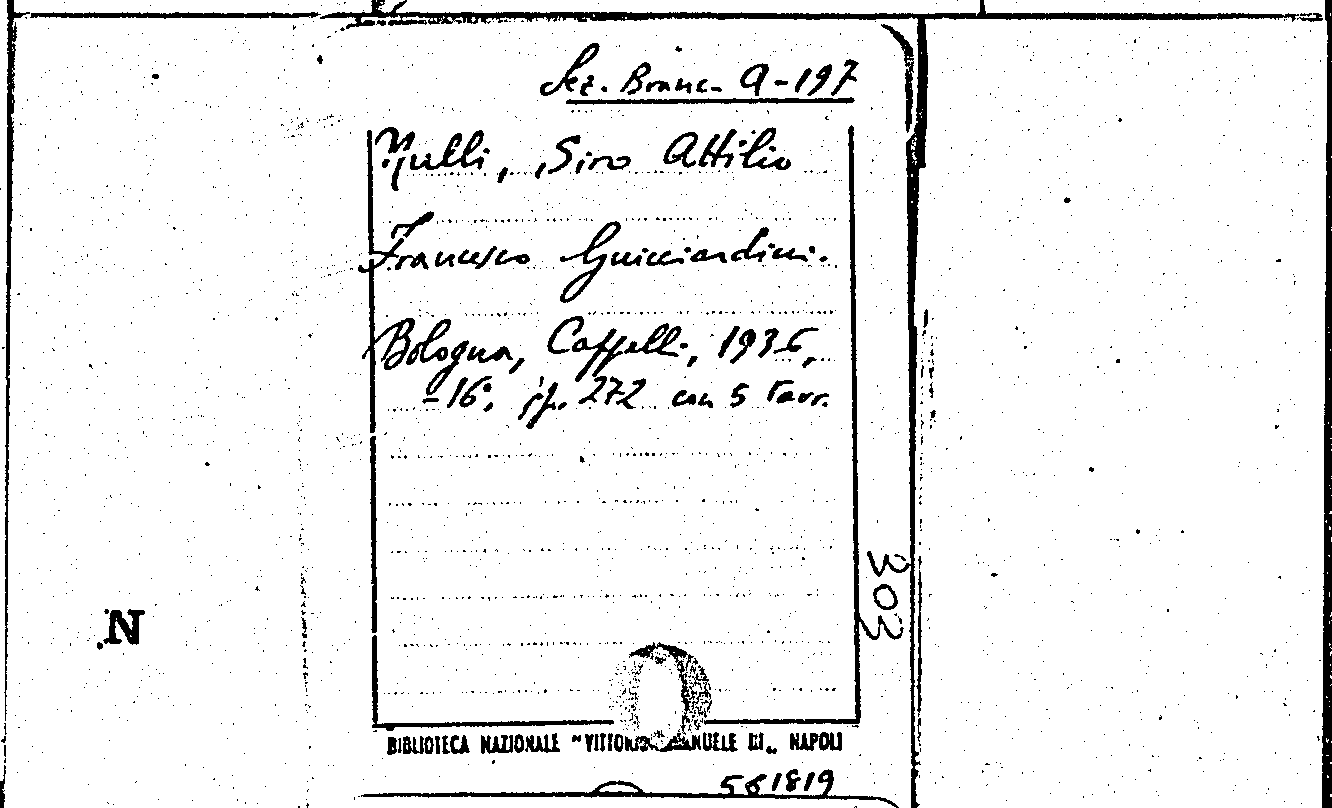 Sez. Branc. A-197
Nulli, Siro Attilio
Francesco Guicciardini.
Bologna, Cappelli, 1936,
-16°, pp. 272 con 5 tavv.
303
N
BIBLIOTECA NAZIONALE "VITTORIO EMANUELE III„ NAPOLI
561819